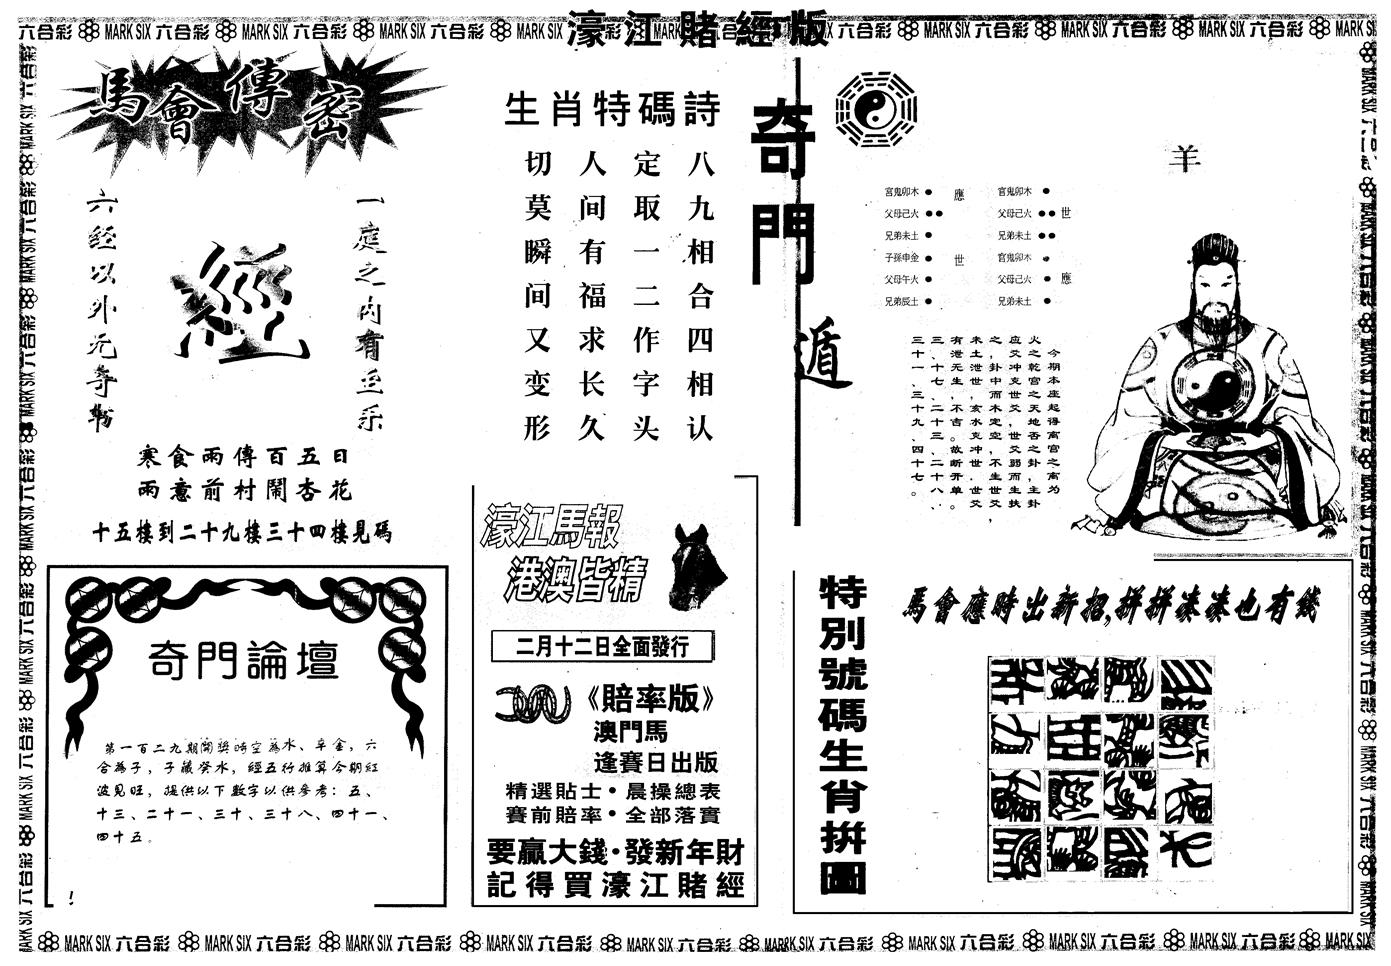 濠江賭經版
六合彩 MARK SIX 六合彩 MARK SIX 六合彩 MARK SIX 六合彩 MARK SIX 六合彩 MARK SIX 六合彩 MARK SIX 六合彩 MARK SIX 六合彩
馬會傳密
一庭之內有至乐
經
六经以外无奇書
寒食雨傳百五日
雨意前村鬧杏花
十五樓到二十九樓三十四樓見碼
奇門論壇
第一百二九期開獎時空為水、辛金，六
合為子，子藏癸水，經五行推算今期紅
波見旺，提供以下數字以供參考：五、
十三、二十一、三十、三十八、四十一、
四十五。
生肖特碼詩
八九相合四相认
定取一二作字头
人间有福求长久
切莫瞬间又变形
濠江馬報
港澳皆精
二月十二日全面發行
《賠率版》
澳門馬
逢賽日出版
精選貼士·晨操總表
賽前賠率·全部落實
要贏大錢·發新年財
記得買濠江賭經
奇門遁
羊
官鬼卯木 應 官鬼卯木
父母己火 父母己火 世
兄弟未土 兄弟未土
子孫申金 世 官鬼卯木
父母午火 父母己火 應
兄弟辰土 兄弟未土
今期本座起得离宫之离为
火之乾宫之天地否之卦，主卦
应爻冲克世爻，世爻弱而生扶
之，卦中而木定空，不生世爻，
未土泄世，亥水克冲世，世爻
有泄无生，不吉。故断开单、
三、十七、二十三、二十八、
三十一、三十九、四十七。
特別號碼生肖拼圖
馬會應時出新招，拼拼湊湊也有錢
MARK SIX 六合彩 MARK SIX 六合彩 MARK SIX 六合彩 MARK SIX 六合彩 MARK SIX 六合彩 MARK SIX 六合彩 MARK SIX 六合彩 MARK SIX 六合彩 MARK SIX 六合彩 MARK SIX